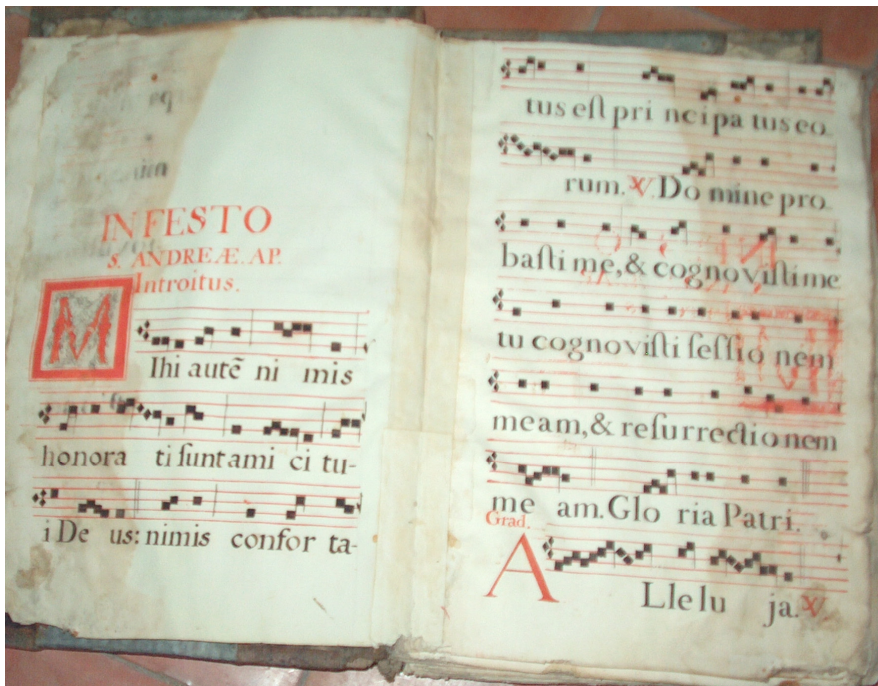 IN FESTO
S. ANDREÆ. AP.
Introitus.
MIhi autẽ ni mis
honora ti sunt ami ci tu-
i De us: nimis confor ta-
tus eſt pri ncipa tus eo
rum. ℣. Do mine pro
baſti me, & cognoviſti me
tu cognoviſti ſeſſio nem
meam, & reſurrectionem
me am. Glo ria Patri.
Grad.
ALle lu ja. ℣.